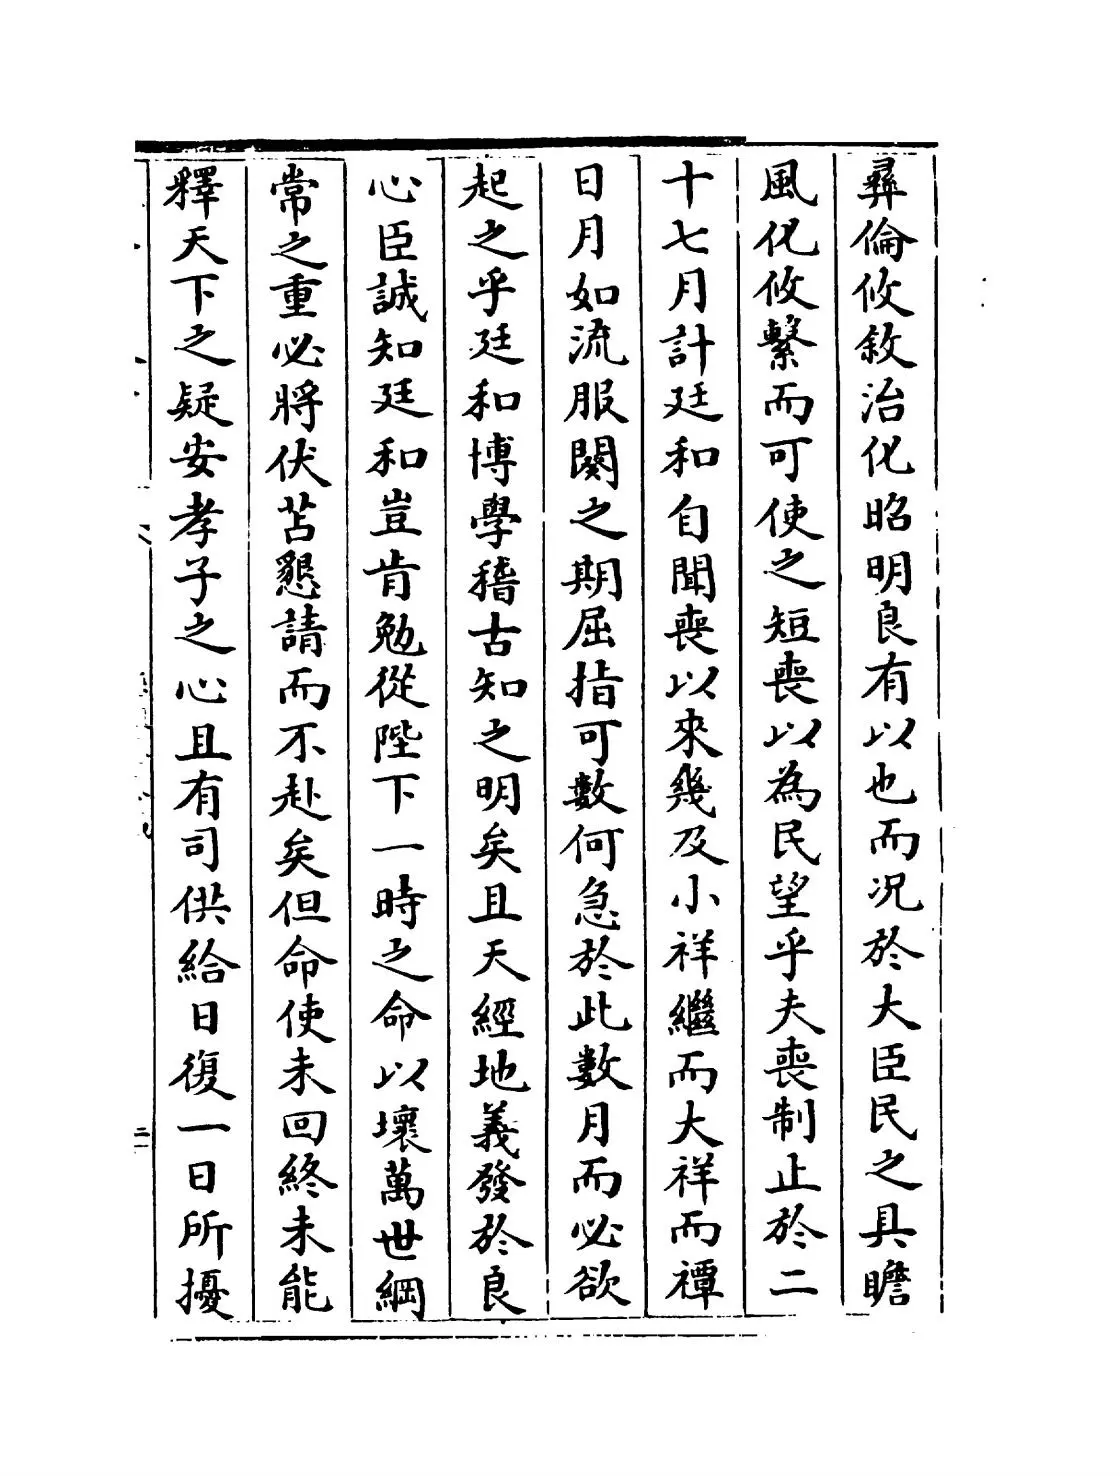 彛倫攸敘治化昭明良有以也而况於大臣民之具瞻
風化攸繫而可使之短喪以為民望乎夫喪制止於二
十七月計廷和自聞喪以來幾及小祥繼而大祥而禫
日月如流服闋之期屈指可數何急於此數月而必欲
起之乎廷和博學稽古知之明矣且天經地義發於良
心臣誠知廷和豈肯勉從陛下一時之命以壞萬世綱
常之重必將伏苫懇請而不赴矣但命使未回終未能
釋天下之疑安孝子之心且有司供給日復一日所擾